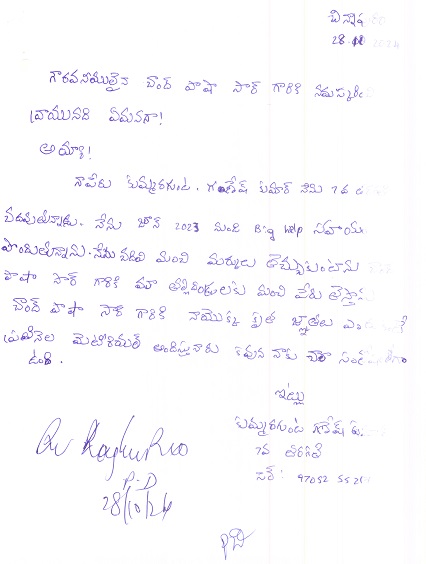 చిన్న
28.10 2024
గౌరవనీయులైన చాంద్ పాషా సార్ గారికి నమస్కరించి
వ్రాయునది ఏమనగా!
అయ్యా!
నాపేరు కుమ్మరగుంట. గణేష్ కుమార్ నేను 7వ
చదువుతున్నాను. నేను జూన్ 2023 నుండి Big Help సహాయ
పొందుతున్నాను. నేను చదివి మంచి మార్కులు తెచ్చుకుంటాను
పాషా సార్ గారికి మా తల్లిదండ్రులకు మంచి పేరు తెస్తాను
చాంద్ పాషా సార్ గారికి నాయొక్క కృతజ్ఞతలు
ప్రతినెల మెటీరియల్ అందిస్తున్నారు కావున నాకు చాలా
ఉంది.
ఇట్లు
కుమ్మరగుంట గణేష్ కు
7వ తరగతి
సెల్: 97052 5521
Raghu Rao
P.D
28/10/24
PD